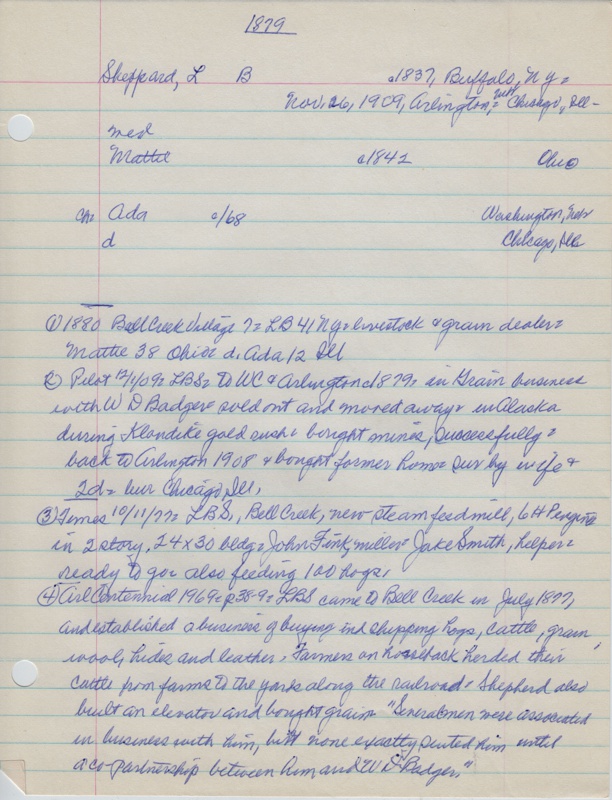 1879
Sheppard, L B c1837, Buffalo, Ny=
Nov. 26, 1909, Arlington, Nebr= Chicago, Ill-
med
Mattie c1842 Ohio
ch= Ada c/68 Washington, Nebr
d Chicago, Ills
① 1880 Bell Creek Village 7= LB 41 Ny= livestock & grain dealer=
Mattie 38 Ohio= d. Ada 12 Ill
② Pilot 12/1/09= LBS= to WC & Arlington c1879= in Grain business
with W D Badger= sold out and moved away= in Alaska
during Klondike gold rush= bought mines, successfully=
back to Arlington 1908 & bought former home= sur by wife &
2d= bur Chicago, Ill,
③ Times 10/11/77= LBS, Bell Creek, new steam feed mill, 6 H P engine
in 2 story, 24x30 bldg= John Fink, miller= Jake Smith, helper=
ready to go= also feeding 100 hogs,
④ Arl Centennial 1969= p38-9= LBS came to Bell Creek in July 1877,
and established a business of buying and shipping hogs, cattle, grain,
wool, hides and leather. Farmers on horseback herded their
cattle from farms to the yards along the railroad= Shepherd also
built an elevator and bought grain= "Several men were associated
in business with him, but none exactly suited him until
a co-partnership between him and W. D. Badger."